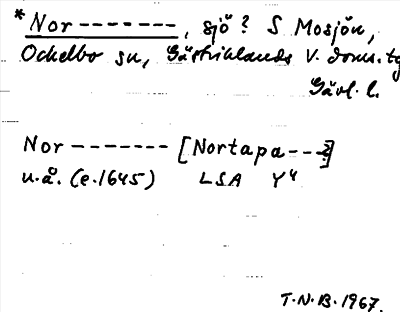 * Nor -------, sjö? S Mosjön,
Ockelbo sn, Gästriklands V. doms. tg
Gävl. l.
Nor ------- [Nortapa---?]
u.å. (e. 1645) LSA Y4
T.N.B. 1967.